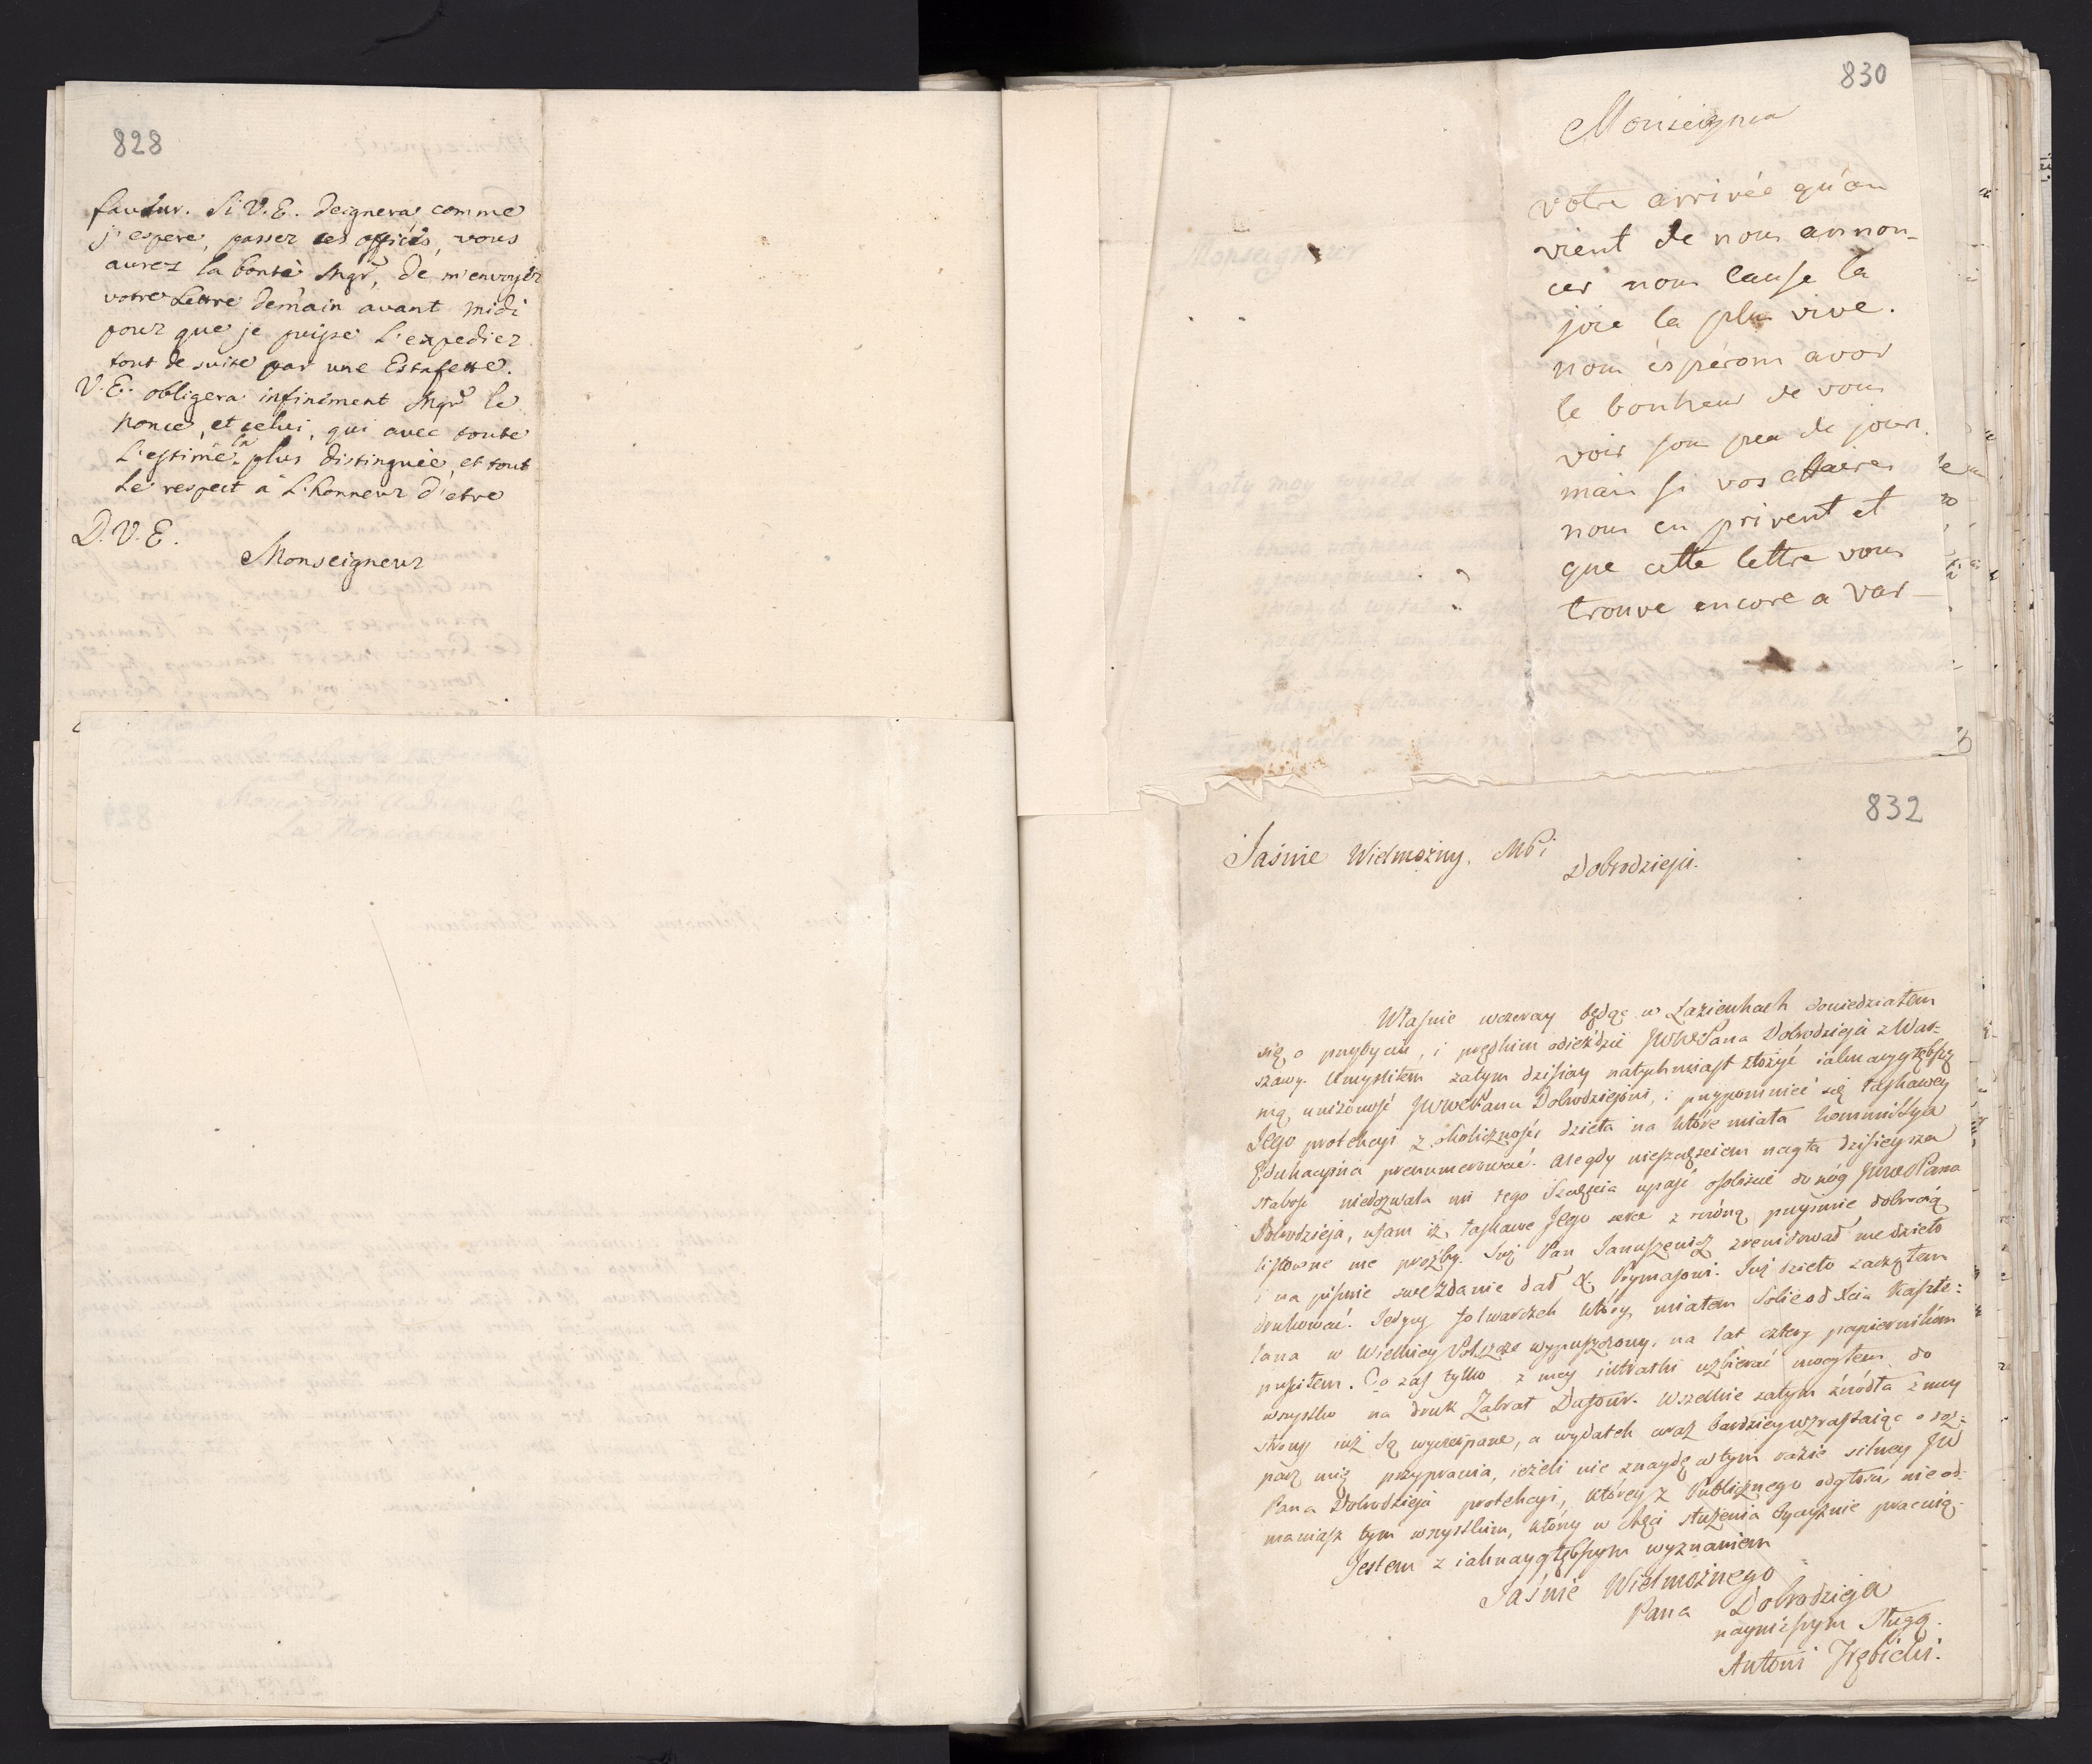 828
faveur. Si V. E. deignera comme
j'espere, passer ces offices, vous
aurez la bonté Mgr, de m'envoyer
votre Lettre demain avant midi
pour que je puisse l'expedier
tout de suite par une Estafette.
V. E. obligera infiniment Mgr le
Nonce, et celui, qui avec toute
l'estime la plus distinguée, et tout
le respect a l'honneur d'etre
D. V. E.
Monseigneur
830
Monseigneur
votre arrivée qu'on
vient de nous annon-
cer nous cause la
joie la plus vive.
nous éspérons avoir
le bonheur de vous
voir sous peu de jours.
mais si vos affaires
nous en privent et
que cette lettre vous
trouve encore a var-
832
Jaśnie Wielmożny
Dobrodzieju.
Właśnie wczeray będąc w Łazienkach dowiedziałem
się o przybyciu, i prędkim odieździe JWWPana Dobrodzieja z War=
szawy. Umyśliłem zatym dzisiay natychmiast złożyć iaknaygłębszą
mą uniżoność JWWPanu Dobrodziejowi, i przypomnieć się łaskawey
Jego protekcyi z okoliczności dzieła na które miała Kommissya
Edukacyina prenumerować. Ale gdy nieszczęściem nagła dzisieysza
słabość niedozwala mi tego szczęścia upaść osobiście do nóg JWWPana
Dobrodzieja, ufam iż łaskawe Jego serce z równą przyimie dobrocią
listowne me prozby. Już Pan Januszewicz zrewidował me dzieło
i na piśmie swe zdanie dał X. Prymasowi. Już dzieło zacząłem
drukować. Jedyny folwarczek który miałem sobie od Xcia Kaszte=
lana w Wielkiey Polszcze wypuszczony, na lat cztery papiernikom
puściłem. Co zaś tylko z mey intratki uzbierać mogłem, do
wszystko na druk zabrał Dufour. Wszelkie zatym źródła z mey
strony już są wyczerpane, a wydatek coraz bardziey wzrastaiąc o roz=
pacz mię przyprawia, ieżeli nie znaydę w tym razie silney JW
Pana Dobrodzieja protekcyi, którey z Publicznego odgłosu, nie od=
mawiasz tym wszystkim, którzy w chęci służenia Oyczyznie pracuią.
Jestem z iaknaygłębszym wyznaniem
Jaśnie Wielmożnego
Pana Dobrodzieja
nayniższym sługą.
Antoni Trębicki.